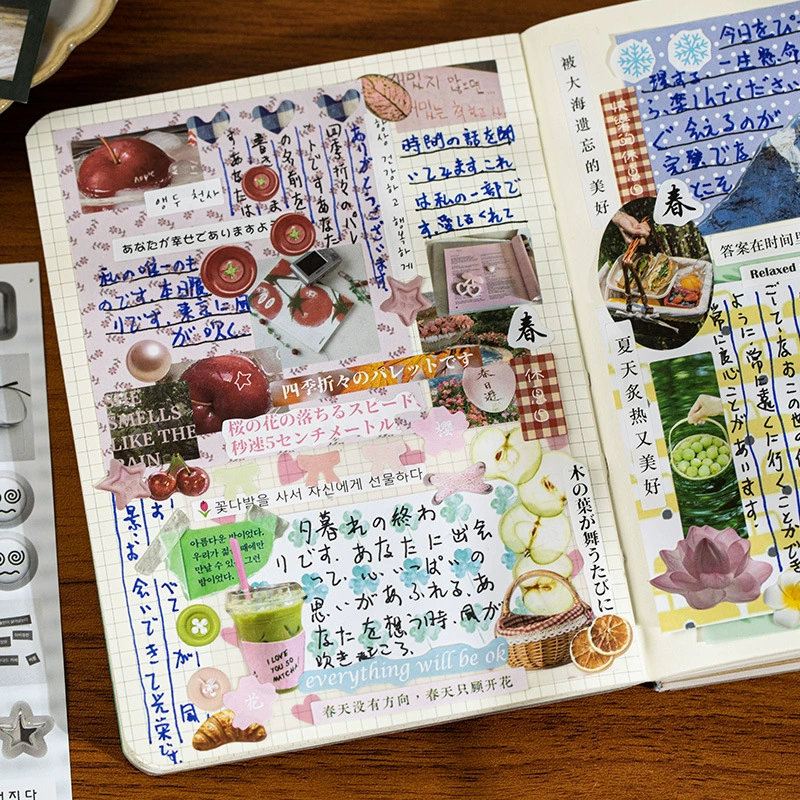 hope
앵두 천사
あなたが幸せでありますよ
ありがとうございます
四季折々のパレ
トです。あなた
の名前を
書きま
私の唯一のも
のです。本日限
りです。東京に風
が吹く
항상 건강하고 행복하게
재밌지 않으면...
時間の話を聞
いてみます これ
は私の一部で
す。愛してくれて
春
春日遊
休日
SHE
SMELLS
LIKE THE
RAIN
四季折々のパレットです
桜の花の落ちるスピード
秒速5センチメートル
꽃다발을 사서 자신에게 선물하다
아름다운 밤이었다.
우리가 젊
만날 수 있
밤이었다.
夕暮れの終わ
りです。あなたに出会
って、心いっぱいの
思いがあふれる、あ
なたを想う時、風が
吹き起こる。
お会いできて光栄です。
I LOVE
YOU SO
MATCHA!
everything will be ok
花
春天没有方向，春天只顾开花
木の葉が舞うたびに
被大海遗忘的美好
快樂的休日
今日をぴ
理する、一生懸命
ら、楽しんでください
ぐ会えるのが
完璧でな
こそ
春
答案在时间里
Relaxed
夏天炙热又美好
ように、常に遠くに行くことができ
常に良いことがあります。